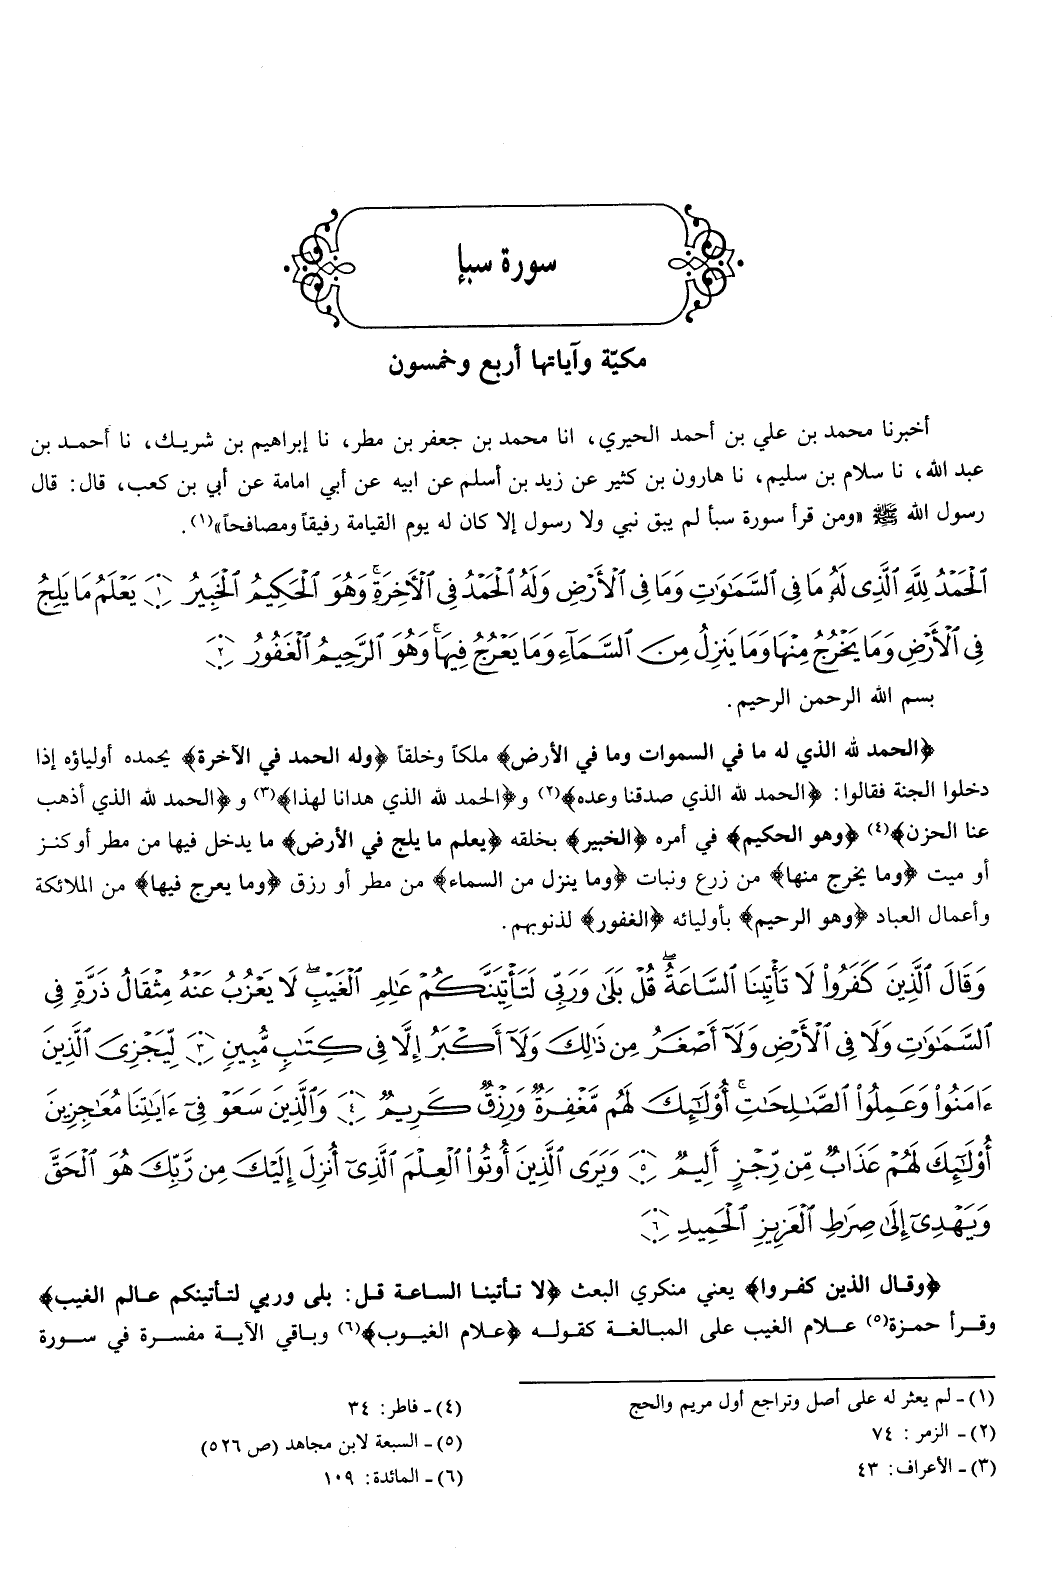 سورة سبإ
مكيّة وآياتها أربع وخمسون
أخبرنا محمد بن علي بن أحمد الحيري، انا محمد بن جعفر بن مطر، نا إبراهيم بن شريك، نا أحمد بن
عبد الله، نا سلام بن سليم، نا هارون بن كثير عن زيد بن أسلم عن ابيه عن أبي امامة عن أبي بن كعب، قال: قال
رسول الله ﷺ «ومن قرأ سورة سبأ لم يبق نبي ولا رسول إلا كان له يوم القيامة رفيقاً ومصافحاً»(١).
ٱلْحَمْدُ لِلَّهِ ٱلَّذِى لَهُۥ مَا فِى ٱلسَّمَٰوَٰتِ وَمَا فِى ٱلْأَرْضِ وَلَهُ ٱلْحَمْدُ فِى ٱلْأَخِرَةِ ۚ وَهُوَ ٱلْحَكِيمُ ٱلْخَبِيرُ ١ يَعْلَمُ مَا يَلِجُ
فِى ٱلْأَرْضِ وَمَا يَخْرُجُ مِنْهَا وَمَا يَنزِلُ مِنَ ٱلسَّمَآءِ وَمَا يَعْرُجُ فِيهَا ۚ وَهُوَ ٱلرَّحِيمُ ٱلْغَفُورُ ٢
بسم الله الرحمن الرحيم.
﴿الحمد لله الذي له ما في السموات وما في الأرض﴾ ملكاً وخلقاً ﴿وله الحمد في الآخرة﴾ يحمده أولياؤه إذا
دخلوا الجنة فقالوا: ﴿الحمد لله الذي صدقنا وعده﴾(٢) و﴿الحمد لله الذي هدانا لهذا﴾(٣) و﴿الحمد لله الذي أذهب
عنا الحزن﴾(٤) ﴿وهو الحكيم﴾ في أمره ﴿الخبير﴾ بخلقه ﴿يعلم ما يلج في الأرض﴾ ما يدخل فيها من مطر أو كنز
أو ميت ﴿وما يخرج منها﴾ من زرع ونبات ﴿وما ينزل من السماء﴾ من مطر أو رزق ﴿وما يعرج فيها﴾ من الملائكة
وأعمال العباد ﴿وهو الرحيم﴾ بأوليائه ﴿الغفور﴾ لذنوبهم.
وَقَالَ ٱلَّذِينَ كَفَرُوا۟ لَا تَأْتِينَا ٱلسَّاعَةُ ۖ قُلْ بَلَىٰ وَرَبِّى لَتَأْتِيَنَّكُمْ عَٰلِمِ ٱلْغَيْبِ ۖ لَا يَعْزُبُ عَنْهُ مِثْقَالُ ذَرَّةٍ فِى
ٱلسَّمَٰوَٰتِ وَلَا فِى ٱلْأَرْضِ وَلَآ أَصْغَرُ مِن ذَٰلِكَ وَلَآ أَكْبَرُ إِلَّا فِى كِتَٰبٍ مُّبِينٍ ٣ لِّيَجْزِىَ ٱلَّذِينَ
ءَامَنُوا۟ وَعَمِلُوا۟ ٱلصَّٰلِحَٰتِ ۚ أُو۟لَٰٓئِكَ لَهُم مَّغْفِرَةٌ وَرِزْقٌ كَرِيمٌ ٤ وَٱلَّذِينَ سَعَوْ فِىٓ ءَايَٰتِنَا مُعَٰجِزِينَ
أُو۟لَٰٓئِكَ لَهُمْ عَذَابٌ مِّن رِّجْزٍ أَلِيمٌ ٥ وَيَرَى ٱلَّذِينَ أُوتُوا۟ ٱلْعِلْمَ ٱلَّذِىٓ أُنزِلَ إِلَيْكَ مِن رَّبِّكَ هُوَ ٱلْحَقَّ
وَيَهْدِىٓ إِلَىٰ صِرَٰطِ ٱلْعَزِيزِ ٱلْحَمِيدِ ٦
﴿وقال الذين كفروا﴾ يعني منكري البعث ﴿لا تأتينا الساعة قل: بلى وربي لتأتينكم عالم الغيب﴾
وقرأ حمزة(٥) علام الغيب على المبالغة كقوله ﴿علام الغيوب﴾(٦) وباقي الآية مفسرة في سورة
(١) - لم يعثر له على أصل وتراجع أول مريم والحج
(٢) - الزمر: ٧٤
(٣) - الأعراف: ٤٣
(٤) - فاطر: ٣٤
(٥) - السبعة لابن مجاهد (ص ٥٢٦)
(٦) - المائدة: ١٠٩